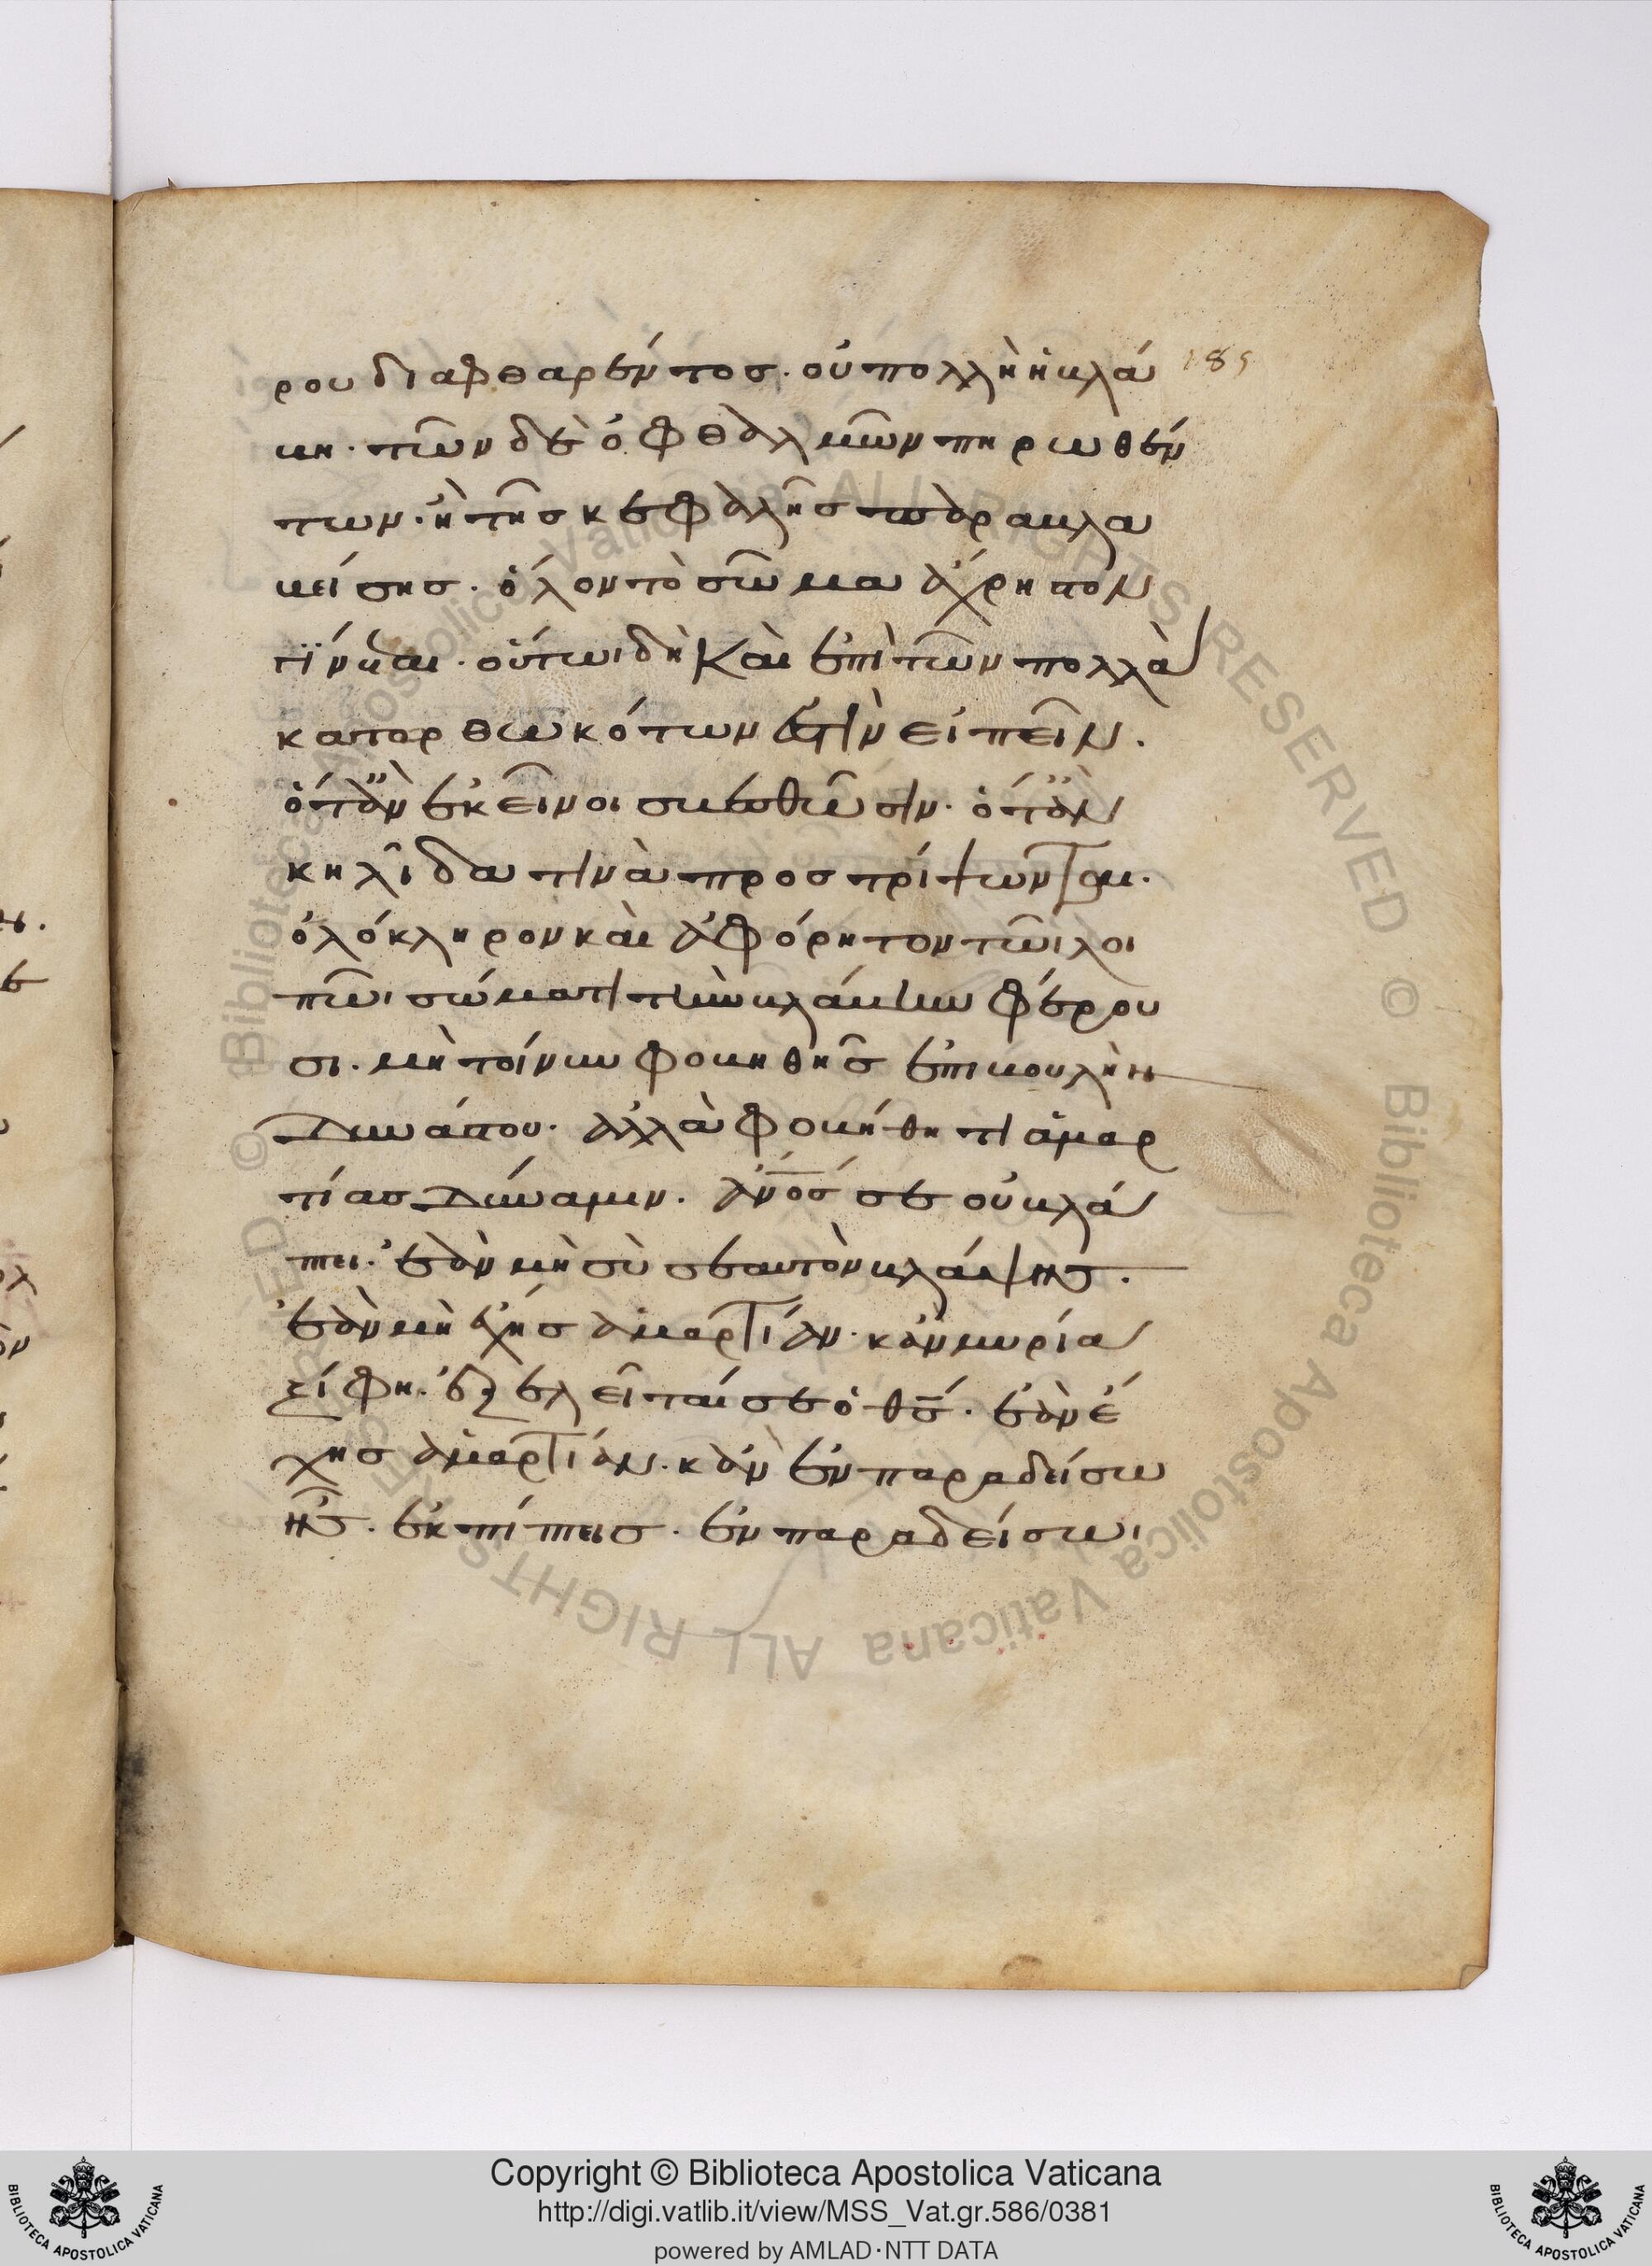 ρου διαφθαρέντος· οὐ πολλὴ ἡ βλά
βη· τῶν δὲ ὀφθαλμῶν πηρωθέν
των· ἢ τῆς κεφαλῆς παραβλα
βείσης· ὅλον τὸ σῶμα ἄχρηστον
γίνεται· οὕτωι δὴ καὶ ἐπὶ τῶν πολλὰ
κατορθωκότων ἔστιν εἰπεῖν·
ὅταν ἐκεῖνοι σβεσθῶσιν· ὅταν
κηλῖδα τινὰ προστρίψωνται·
ὁλόκληρον καὶ ἀφόρητον τῶι λοι
πῶι σώματι τὴν βλάβην φέρου
σι· μὴ τοίνυν φοβηθῆς ἐπιβουλὴν
δυνάστου· ἀλλὰ φοβήθητι ἁμαρ
τίας δύναμιν· ἄνός σε οὐ βλά
πτει· ἐὰν μὴ σὺ σεαυτὸν βλάψης·
ἐὰν μὴ ἔχης ἁμαρτίαν· κἂν μυρία
ξίφη· ἐξελεῖται σε ὁ θς· ἐὰν ἔ
χης ἁμαρτίαν· κἂν ἐν παραδείσω
ῆς· ἐκπίπτεις· ἐν παραδείσωι
185
Copyright © Biblioteca Apostolica Vaticana
http://digi.vatlib.it/view/MSS_Vat.gr.586/0381
powered by AMLAD·NTT DATA
BIBLIOTECA APOSTOLICA VATICANA
BIBLIOTECA APOSTOLICA VATICANA
© Biblioteca Apostolica Vaticana ALL RIGHTS RESERVED © Biblioteca Apostolica Vaticana ALL RIGHTS RESERVED